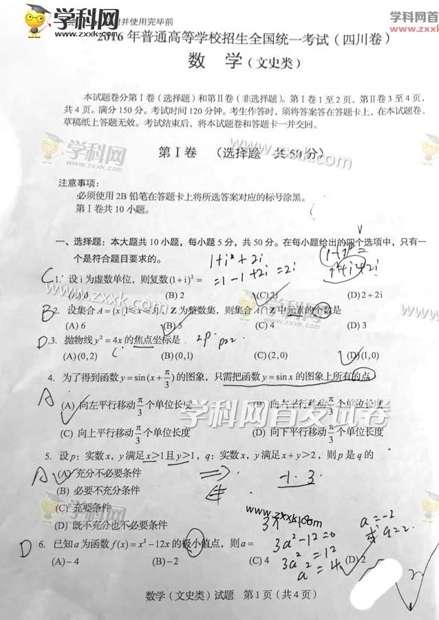 学科网 www.zxxk.com
学科网首发
www.zxxk.com
使用完毕前
2016年普通高等学校招生全国统一考试(四川卷)
数 学(文史类)
本试题卷分第Ⅰ卷(选择题)和第Ⅱ卷(非选择题)。第Ⅰ卷1至2页,第Ⅱ卷3至4页,
共4页。满分150分。考试时间120分钟。考生作答时,须将答案答在答题卡上,在本试题卷、
草稿纸上答题无效。考试结束后,将本试题卷和答题卡一并交回。
第Ⅰ卷 (选择题 共50分)
注意事项:
必须使用2B铅笔在答题卡上将所选答案对应的标号涂黑。
第Ⅰ卷共10小题。
一、选择题:本大题共10小题,每小题5分,共50分。在每小题给出的四个选项中,只有一
个是符合题目要求的。
1+i²+2i
C 1. 设i为虚数单位,则复数(1+i)² = =1-1+2i =2i
(B) 2 (C) 2i (D) 2+2i
B 2. 设集合A={x|1≤x≤5},Z为整数集,则集合A∩Z中元素的个数是
(A) 6 (B) 5 (C) 4 (D) 3
D 3. 抛物线y²=4x的焦点坐标是 2p p=2
(A) (0,2) (B) (0,1) (C) (2,0) (D) (1,0)
4. 为了得到函数y=sin(x+π/3)的图象,只需把函数y=sin x的图象上所有的点
A (A) 向左平行移动π/3个单位长度
(C) 向上平行移动π/3个单位长度 (D) 向下平行移动π/3个单位长度
学科网首发试卷
5. 设p:实数x,y满足x>1且y>1,q:实数x,y满足x+y>2,则p是q的
A (A) 充分不必要条件
(B) 必要不充分条件
(C) 充要条件
(D) 既不充分也不必要条件
www.zxxk.com
D 6. 已知a为函数f(x)=x³-12x的极小值点,则a=
(A) -4 (B) -2 (C) 4 (D) 2
3a²-12=0
3a²=12
a²=4
a=-2
a=2
数学(文史类)试题 第1页(共4页)